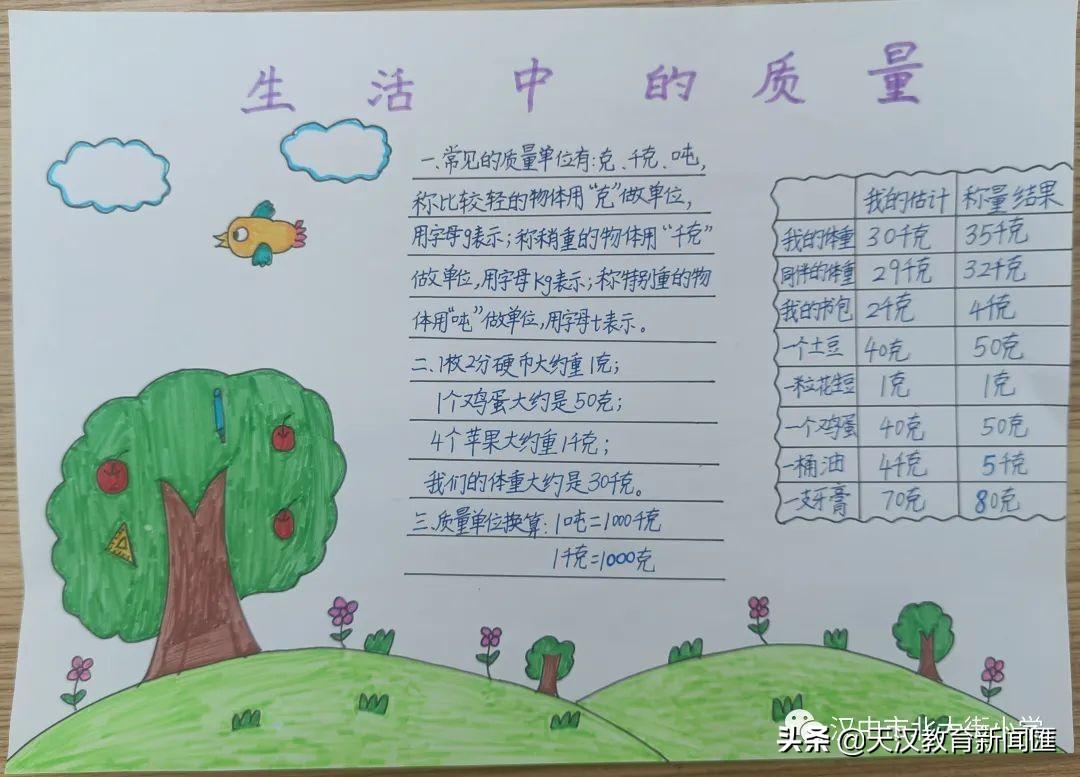 生活中的质量
一、常见的质量单位有:克、千克、吨,
称比较轻的物体用“克”做单位,
用字母g表示;称稍重的物体用“千克”
做单位,用字母kg表示;称特别重的物
体用“吨”做单位,用字母t表示。
二、1枚2分硬币大约重1克;
1个鸡蛋大约是50克;
4个苹果大约重1千克;
我们的体重大约是30千克。
三、质量单位换算:1吨=1000千克
1千克=1000克
我的估计 称量结果
我的体重 30千克 35千克
同伴的体重 29千克 32千克
我的书包 2千克 4千克
一个土豆 40克 50克
一粒花生豆 1克 1克
一个鸡蛋 40克 50克
一桶油 4千克 5千克
一支牙膏 70克 80克
汉中市北大街小学
头条 @天汉教育新闻匯